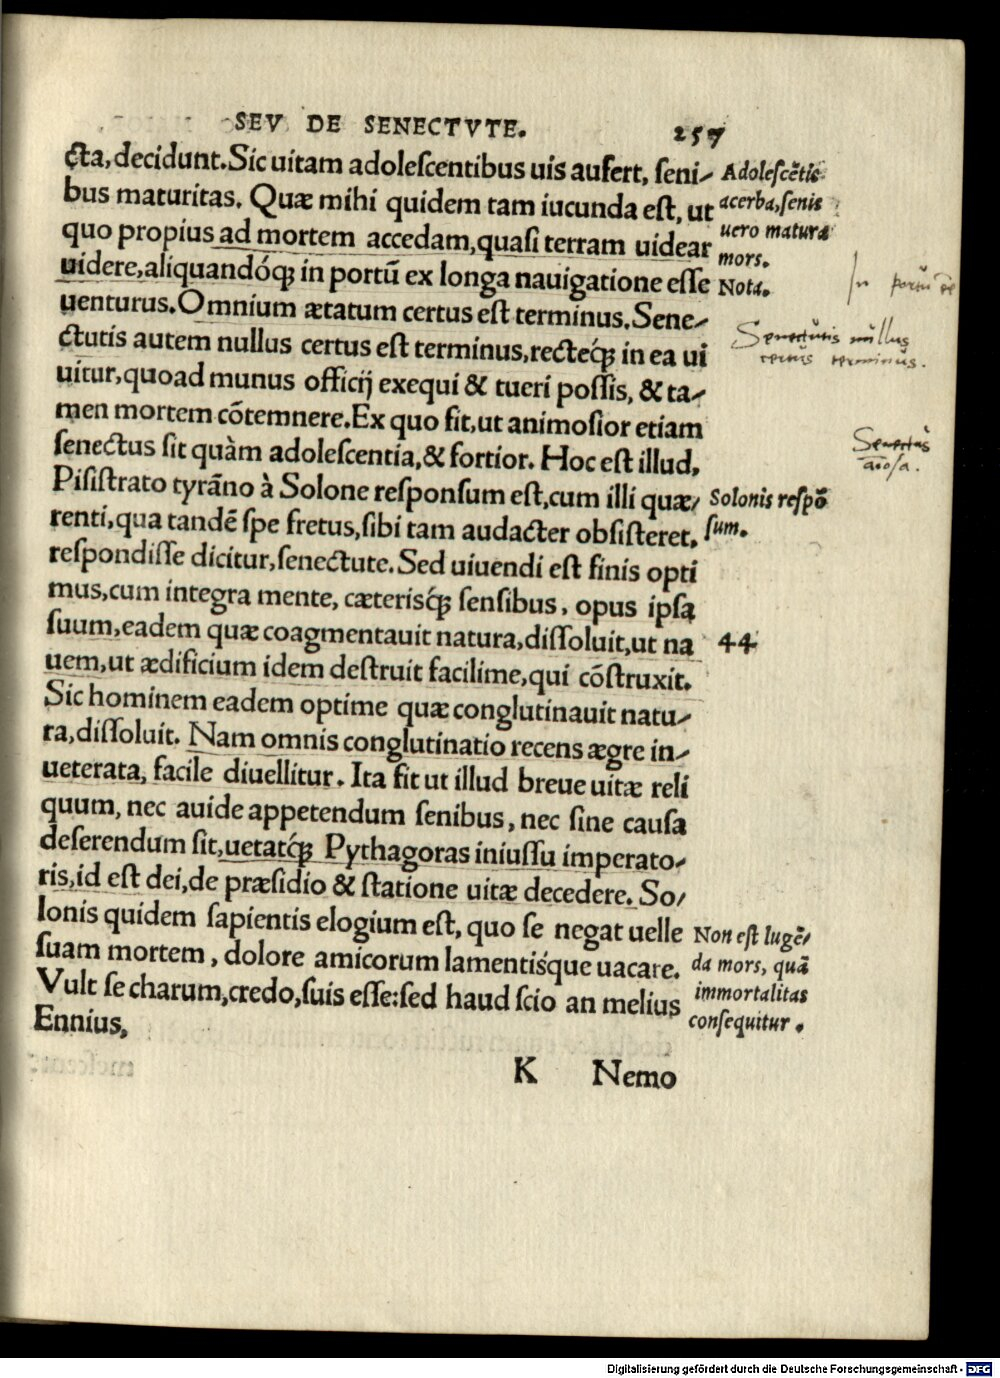 SEV DE SENECTVTE. 257
cta, decidunt. Sic uitam adolescentibus uis aufert, seni-
bus maturitas. Quæ mihi quidem tam iucunda est, ut
quo propius ad mortem accedam, quasi terram uidear
uidere, aliquandóq; in portū ex longa nauigatione esse
uenturus. Omnium ætatum certus est terminus. Sene-
ctutis autem nullus certus est terminus, rectéq; in ea ui
uitur, quoad munus officij exequi & tueri possis, & ta-
men mortem cōtemnere. Ex quo fit, ut animosior etiam
senectus sit quàm adolescentia, & fortior. Hoc est illud,
Pisistrato tyrāno à Solone responsum est, cum illi quæ-
renti, qua tandē spe fretus, sibi tam audacter obsisteret,
respondisse dicitur, senectute. Sed uiuendi est finis opti
mus, cum integra mente, cæterisq́; sensibus, opus ipsa
suum, eadem quæ coagmentauit natura, dissoluit, ut na
uem, ut ædificium idem destruit facilime, qui cōstruxit.
Sic hominem eadem optime quæ conglutinauit natu-
ra, dissoluit. Nam omnis conglutinatio recens ægre in-
ueterata, facile diuellitur. Ita fit ut illud breue uitæ reli
quum, nec auide appetendum senibus, nec sine causa
deserendum sit, uetatq́; Pythagoras iniussu imperato-
ris, id est dei, de præsidio & statione uitæ decedere. So-
lonis quidem sapientis elogium est, quo se negat uelle
suam mortem, dolore amicorum lamentisq́ue uacare.
Vult se charum, credo, suis esse: sed haud scio an melius
Ennius,
K Nemo
Adolescētis
acerba, senis
uero matura
mors.
Nota.
In portū
Senectutis nullus
certus terminus.
Senectus
Solonis respō
sum.
44
Non est lugē-
da mors, quā
immortalitas
consequitur.
Digitalisierung gefördert durch die Deutsche Forschungsgemeinschaft - DFG